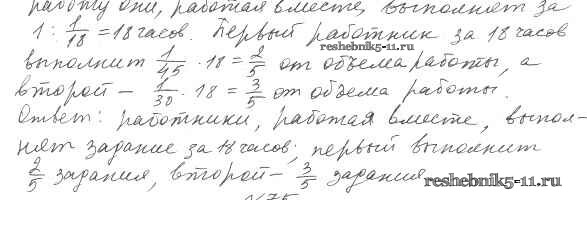 работу они, работая вместе, выполнят за
1 : 1/18 = 18 часов. Первый работник за 18 часов
reshebnik5-11.ru
выполнит 1/45 · 18 = 2/5 от объема работы, а
второй – 1/30 · 18 = 3/5 от объема работы.
Ответ: работники, работая вместе, выпол-
нят задание за 18 часов; первый выполнит
2/5 задания, второй – 3/5 задания
reshebnik5-11.ru